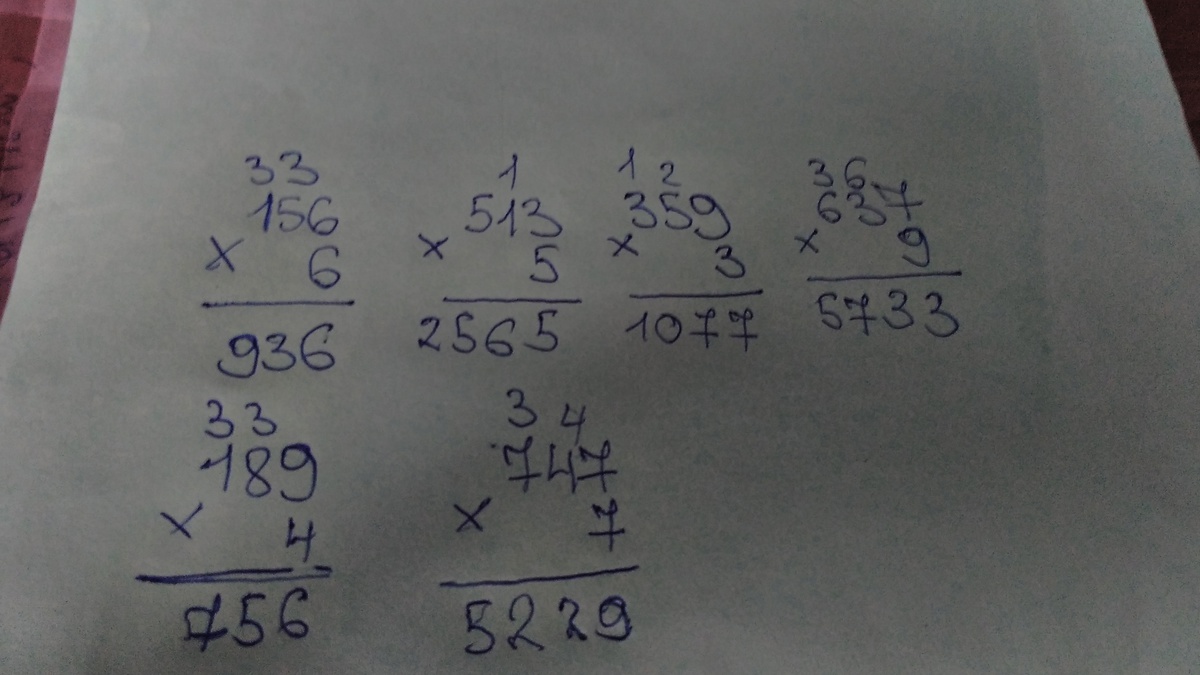 33 1 1 2 3 6
156 513 359 637
× 6 × 5 × 3 × 9
936 2565 1077 5733
33 3 4
189 747
× 4 × 7
756 5229